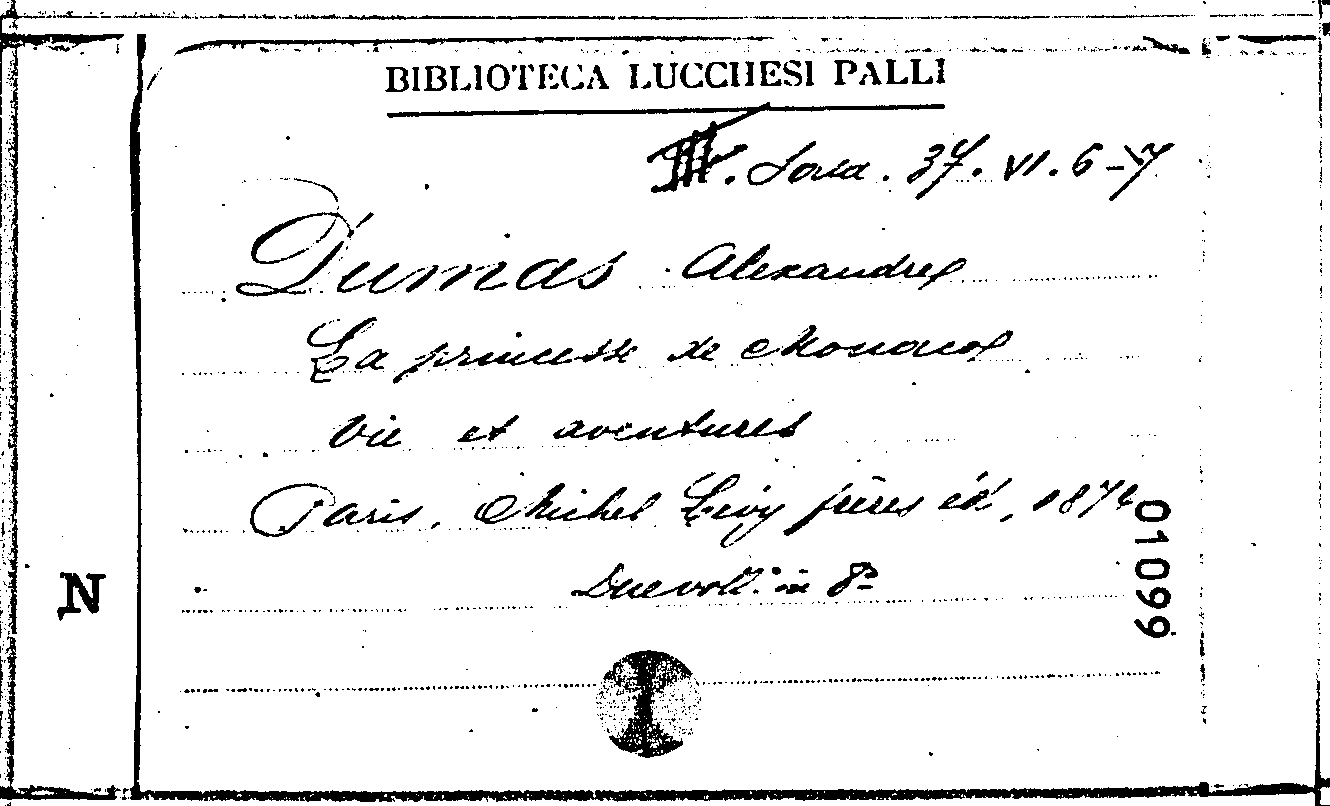 BIBLIOTECA LUCCHESI PALLI
Sala. 37. VI. 6-7
Dumas Alexandre
La princesse de Monaco
Vie et aventures
Paris, Michel Lévy frères éd, 187
Due voll. in 8º
01099
N